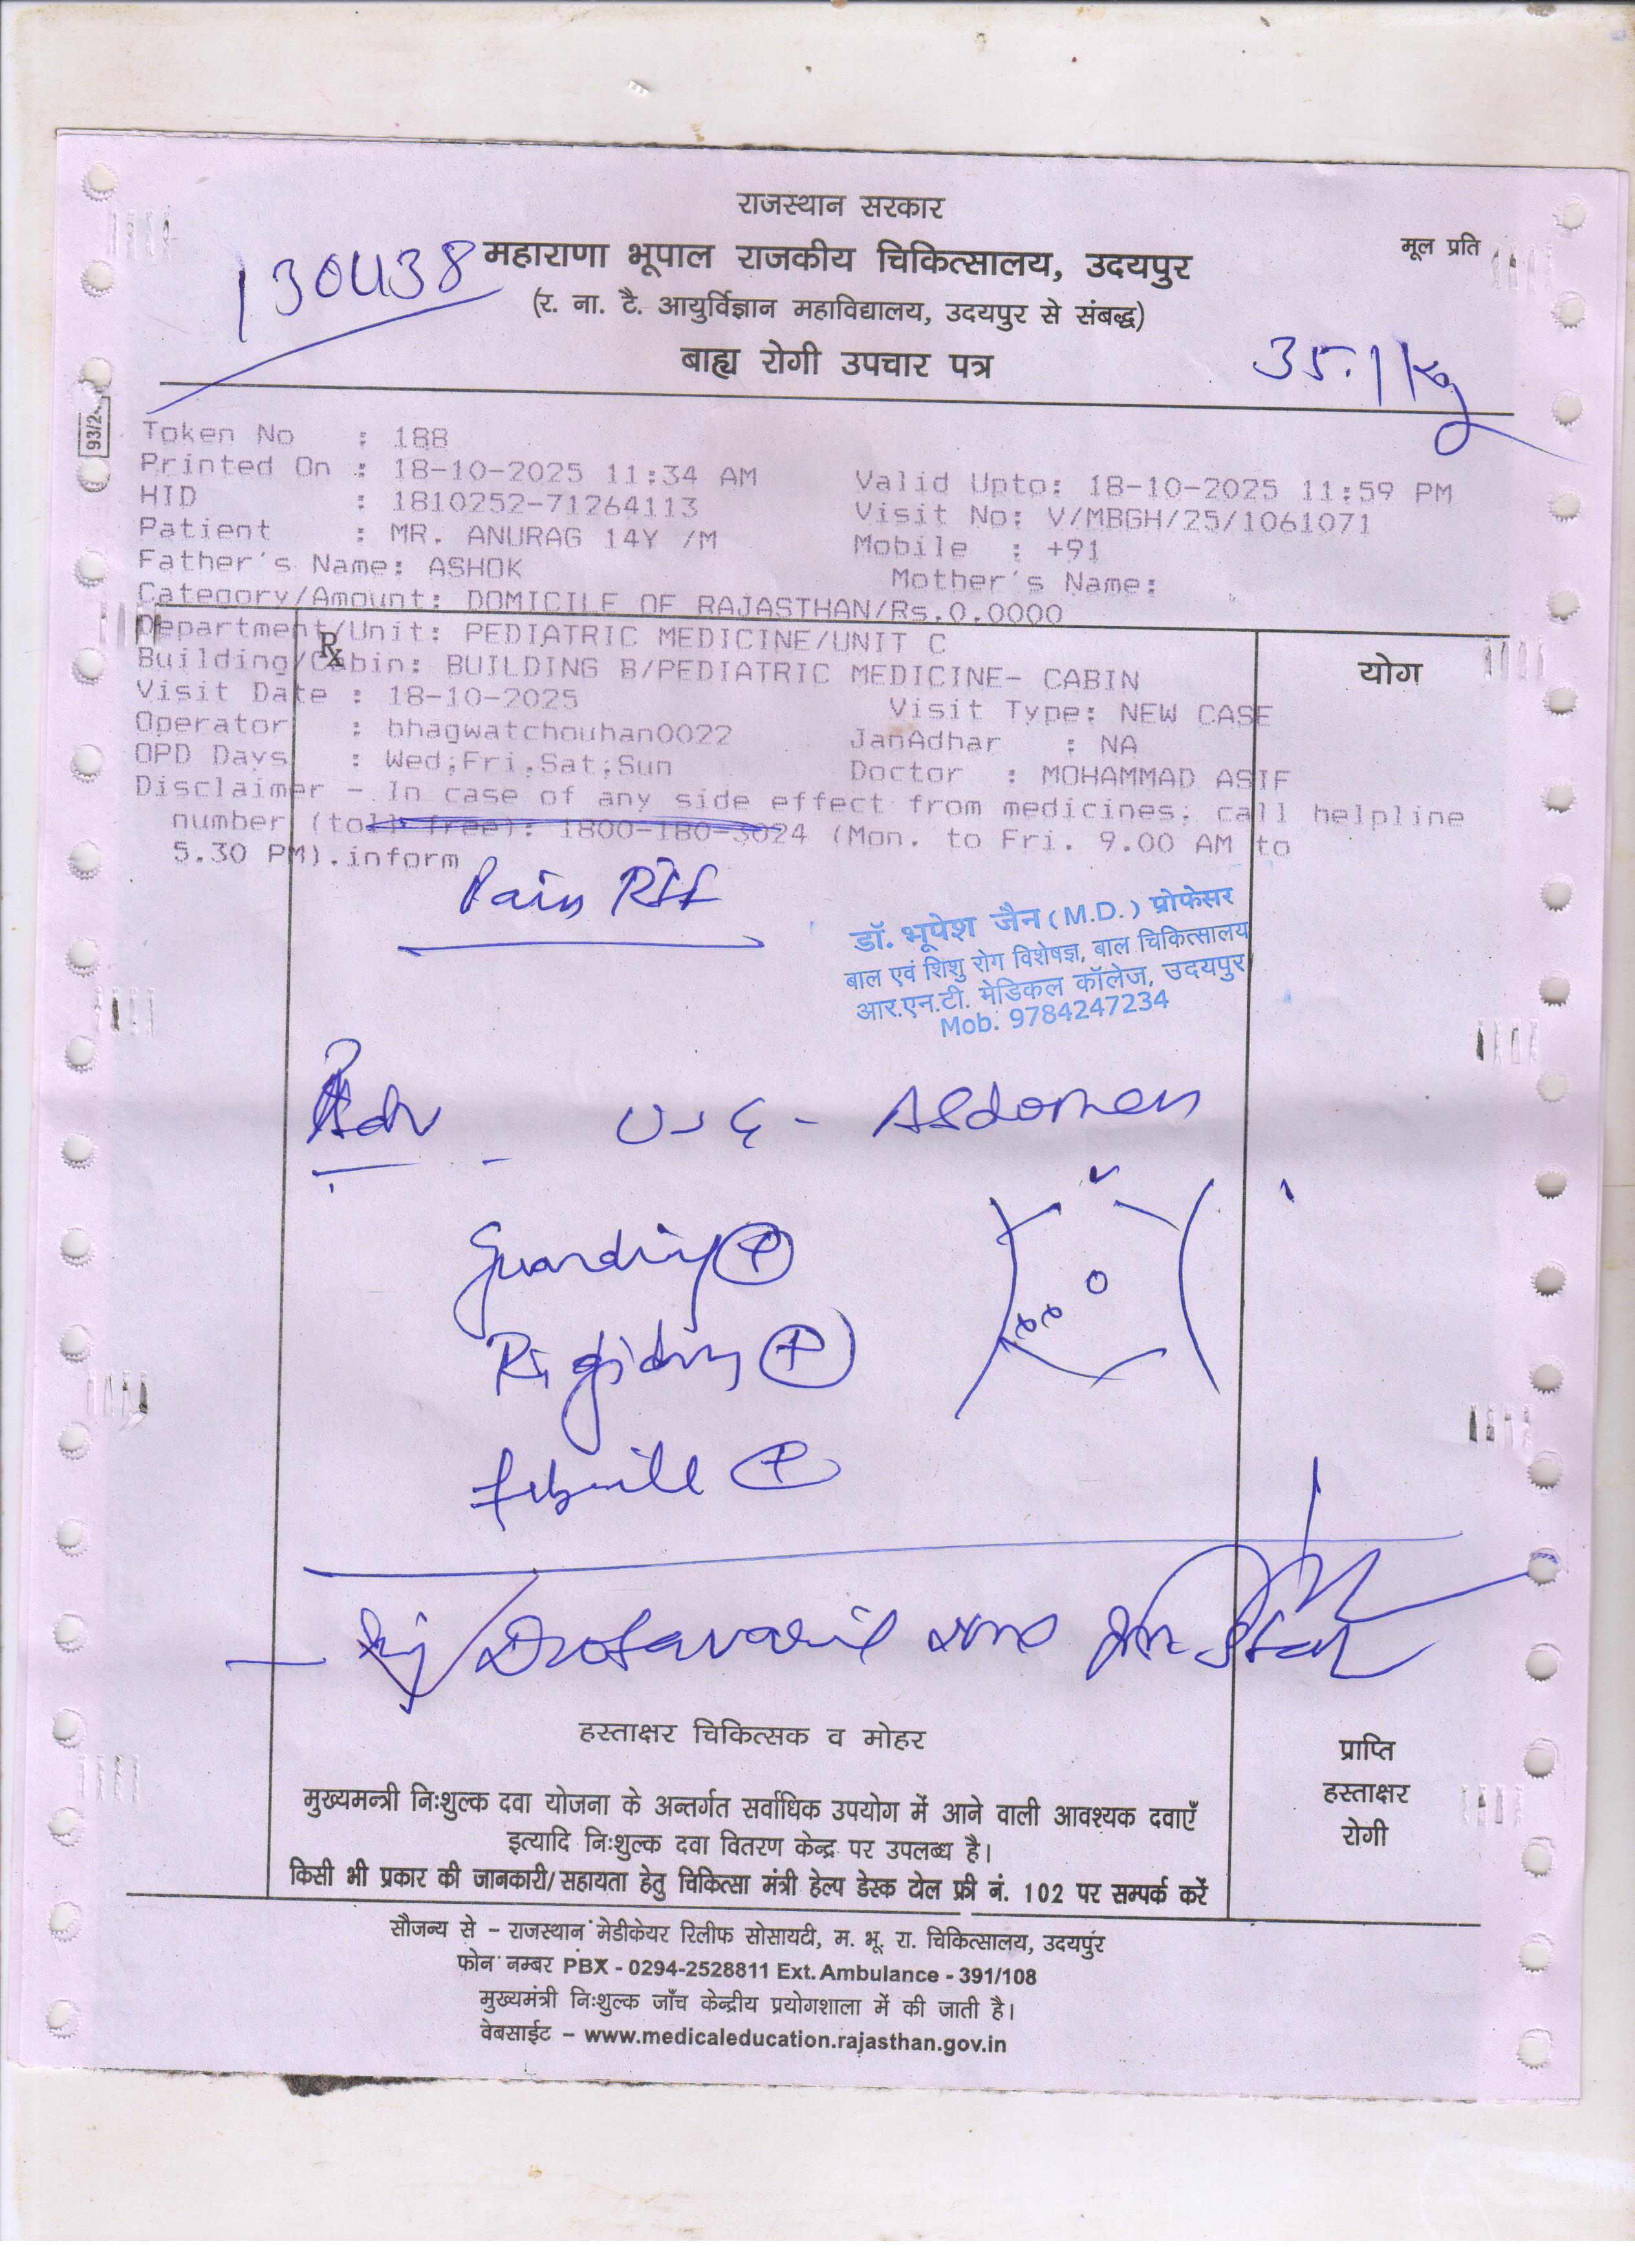 राजस्थान सरकार
मूल प्रति
130438
महाराणा भूपाल राजकीय चिकित्सालय, उदयपुर
(र. ना. टै. आयुर्विज्ञान महाविद्यालय, उदयपुर से संबद्ध)
बाह्य रोगी उपचार पत्र
35.1 kg
93/2
Token No : 188
Printed On : 18-10-2025 11:34 AM Valid Upto: 18-10-2025 11:59 PM
HID : 1810252-71264113 Visit No: V/MBGH/25/1061071
Patient : MR. ANURAG 14Y /M Mobile : +91
Father's Name: ASHOK Mother's Name:
Category/Amount: DOMICILE OF RAJASTHAN/Rs.0.0000
Department/Unit: PEDIATRIC MEDICINE/UNIT C
Rx
योग
Building/Cabin: BUILDING B/PEDIATRIC MEDICINE- CABIN
Visit Date : 18-10-2025 Visit Type: NEW CASE
Operator : bhagwatchouhan0022 JanAdhar : NA
OPD Days : Wed;Fri,Sat;Sun Doctor : MOHAMMAD ASIF
Disclaimer - In case of any side effect from medicines, call helpline
number (toll free): 1800-180-3024 (Mon. to Fri. 9.00 AM to
5.30 PM).inform
Pain RIF
डॉ. भूपेश जैन (M.D.) प्रोफेसर
बाल एवं शिशु रोग विशेषज्ञ, बाल चिकित्सालय
आर.एन.टी. मेडिकल कॉलेज, उदयपुर
Mob. 9784247234
Adv - USG - Abdomen
Guarding +
Rigidity +
febrile +
- Inj Drotavarin
हस्ताक्षर चिकित्सक व मोहर
प्राप्ति
हस्ताक्षर
रोगी
मुख्यमन्त्री निःशुल्क दवा योजना के अन्तर्गत सर्वाधिक उपयोग में आने वाली आवश्यक दवाएँ
इत्यादि निःशुल्क दवा वितरण केन्द्र पर उपलब्ध है।
किसी भी प्रकार की जानकारी/सहायता हेतु चिकित्सा मंत्री हेल्प डेस्क टोल फ्री नं. 102 पर सम्पर्क करें
सौजन्य से – राजस्थान मेडीकेयर रिलीफ सोसायटी, म. भू. रा. चिकित्सालय, उदयपुर
फोन नम्बर PBX - 0294-2528811 Ext. Ambulance - 391/108
मुख्यमंत्री निःशुल्क जाँच केन्द्रीय प्रयोगशाला में की जाती है।
वेबसाईट – www.medicaleducation.rajasthan.gov.in